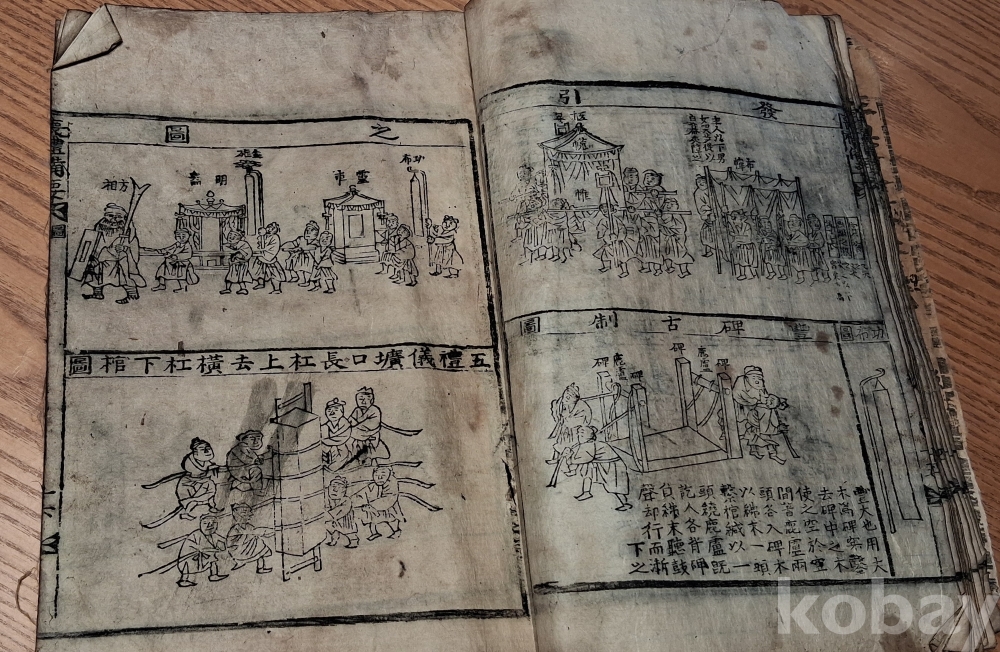 發引
主人以下男
女哭步從以
翣
帷
功布圖
豊碑古制圖
碑
鹿盧
碑
碑
鹿盧
碑
豊大也用大
木爲碑穿鑿
去碑中之木
使之空於空
間着鹿盧兩
頭各入碑木
以綍末一頭
繫棺緘以一
頭繞鹿盧既
訖人各背碑
負綍末聽鼓
聲却行而漸
下之
之圖
功布
靈車
銘旌
明器
方相
五禮儀壙口長杠上去橫杠下棺圖
kobay